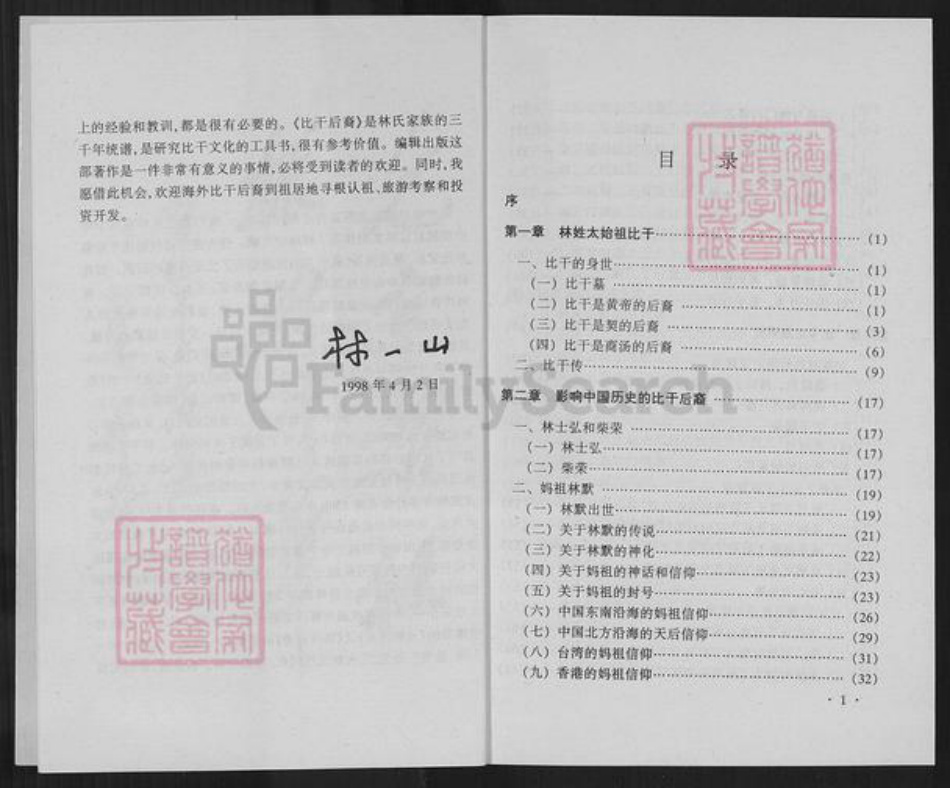 上的经验和教训,都是很有必要的。《比干后裔》是林氏家族的三
千年统谱,是研究比干文化的工具书,很有参考价值。编辑出版这
部著作是一件非常有意义的事情,必将受到读者的欢迎。同时,我
愿借此机会,欢迎海外比干后裔到祖居地寻根认祖、旅游考察和投
资开发。
林一山
1998年4月2日
FamilySearch
猶他家
譜學會
收藏
目 录
猶他家
譜學會
收藏
序
第一章 林姓太始祖比干……………………(1)
一、比干的身世……………………(1)
(一)比干墓……………………(1)
(二)比干是黄帝的后裔……………………(1)
(三)比干是契的后裔……………………(3)
(四)比干是商汤的后裔……………………(6)
二、比干传……………………(9)
第二章 影响中国历史的比干后裔……………………(17)
一、林士弘和柴荣……………………(17)
(一)林士弘……………………(17)
(二)柴荣……………………(17)
二、妈祖林默……………………(19)
(一)林默出世……………………(19)
(二)关于林默的传说……………………(21)
(三)关于林默的神化……………………(22)
(四)关于妈祖的神话和信仰……………………(23)
(五)关于妈祖的封号……………………(23)
(六)中国东南沿海的妈祖信仰……………………(26)
(七)中国北方沿海的天后信仰……………………(29)
(八)台湾的妈祖信仰……………………(31)
(九)香港的妈祖信仰……………………(32)
·1·